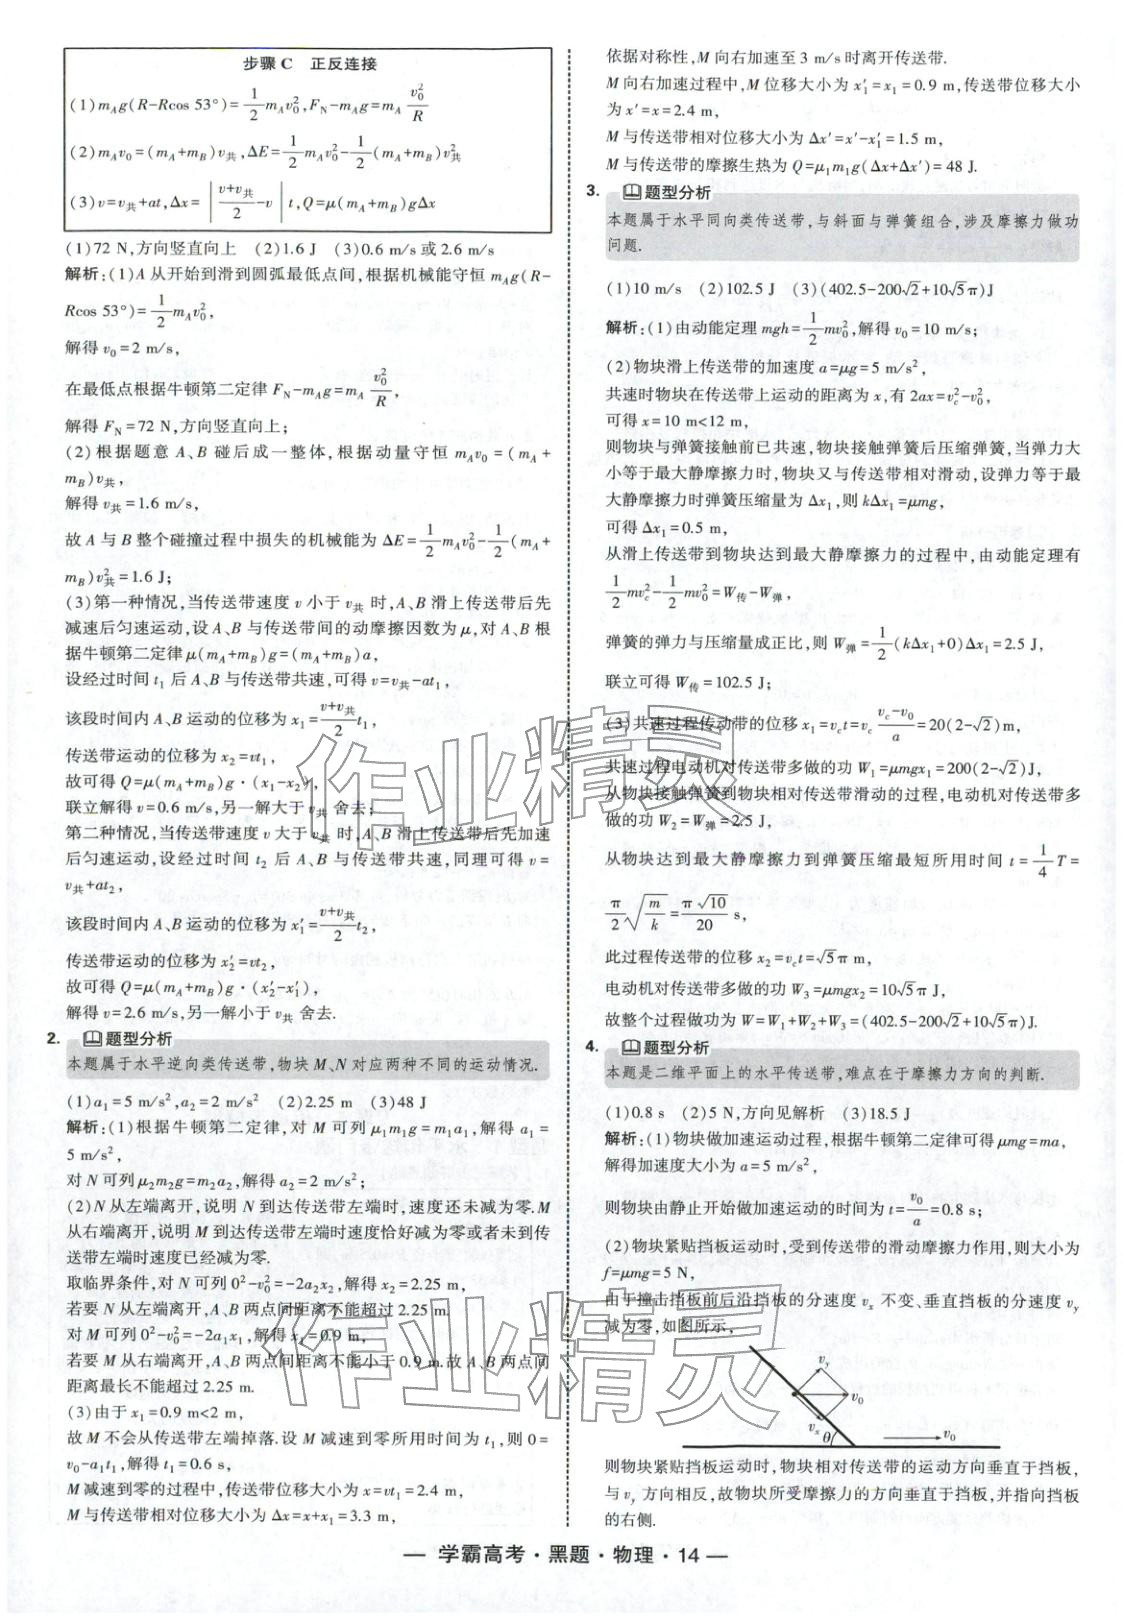 步骤C 正反连接
(1)m_Ag(R-Rcos 53°)=1/2m_Av_0^2,F_N-m_Ag=m_A v_0^2/R
(2)m_Av_0=(m_A+m_B)v_共,ΔE=1/2m_Av_0^2-1/2(m_A+m_B)v_共^2
(3)v=v_共+at,Δx=|(v+v_共)/2-v|t,Q=μ(m_A+m_B)gΔx
(1)72 N,方向竖直向上 (2)1.6 J (3)0.6 m/s或2.6 m/s
解析:(1)A从开始到滑到圆弧最低点间,根据机械能守恒m_Ag(R-
Rcos 53°)=1/2m_Av_0^2,
解得v_0=2 m/s,
在最低点根据牛顿第二定律F_N-m_Ag=m_A v_0^2/R,
解得F_N=72 N,方向竖直向上;
(2)根据题意A、B碰后成一整体,根据动量守恒m_Av_0=(m_A+
m_B)v_共,
解得v_共=1.6 m/s,
故A与B整个碰撞过程中损失的机械能为ΔE=1/2m_Av_0^2-1/2(m_A+
m_B)v_共^2=1.6 J;
(3)第一种情况,当传送带速度v小于v_共时,A、B滑上传送带后先
减速后匀速运动,设A、B与传送带间的动摩擦因数为μ,对A、B根
据牛顿第二定律μ(m_A+m_B)g=(m_A+m_B)a,
设经过时间t_1后A、B与传送带共速,可得v=v_共-at_1,
该段时间内A、B运动的位移为x_1=(v+v_共)/2 t_1,
传送带运动的位移为x_2=vt_1,
故可得Q=μ(m_A+m_B)g·(x_1-x_2),
联立解得v=0.6 m/s,另一解大于v_共舍去;
第二种情况,当传送带速度v大于v_共时,A、B滑上传送带后先加速
后匀速运动,设经过时间t_2后A、B与传送带共速,同理可得v=
v_共+at_2,
该段时间内A、B运动的位移为x_1'=(v+v_共)/2 t_2,
传送带运动的位移为x_2'=vt_2,
故可得Q=μ(m_A+m_B)g·(x_2'-x_1'),
解得v=2.6 m/s,另一解小于v_共舍去.
2. 题型分析
本题属于水平逆向类传送带,物块M、N对应两种不同的运动情况.
(1)a_1=5 m/s²,a_2=2 m/s² (2)2.25 m (3)48 J
解析:(1)根据牛顿第二定律,对M可列μ_1m_1g=m_1a_1,解得a_1=
5 m/s²,
对N可列μ_2m_2g=m_2a_2,解得a_2=2 m/s²;
(2)N从左端离开,说明N到达传送带左端时,速度还未减为零.M
从右端离开,说明M到达传送带左端时速度恰好减为零或者未到传
送带左端时速度已经减为零.
取临界条件,对N可列0²-v_0^2=-2a_2x_2,解得x_2=2.25 m,
若要N从左端离开,A、B两点间距离不能超过2.25 m.
对M可列0²-v_0^2=-2a_1x_1,解得x_1=0.9 m,
若要M从右端离开,A、B两点间距离不能小于0.9 m.故A、B两点间
距离最长不能超过2.25 m.
(3)由于x_1=0.9 m<2 m,
故M不会从传送带左端掉落.设M减速到零所用时间为t_1,则0=
v_0-a_1t_1,解得t_1=0.6 s,
M减速到零的过程中,传送带位移大小为x=vt_1=2.4 m,
M与传送带相对位移大小为Δx=x+x_1=3.3 m,
依据对称性,M向右加速至3 m/s时离开传送带.
M向右加速过程中,M位移大小为x_1'=x_1=0.9 m,传送带位移大小
为x'=x=2.4 m,
M与传送带相对位移大小为Δx'=x'-x_1'=1.5 m,
M与传送带的摩擦生热为Q=μ_1m_1g(Δx+Δx')=48 J.
3. 题型分析
本题属于水平同向类传送带,与斜面与弹簧组合,涉及摩擦力做功
问题.
(1)10 m/s (2)102.5 J (3)(402.5-200√2+10√5π)J
解析:(1)由动能定理mgh=1/2mv_0^2,解得v_0=10 m/s;
(2)物块滑上传送带的加速度a=μg=5 m/s²,
共速时物块在传送带上运动的距离为x,有2ax=v_c^2-v_0^2,
可得x=10 m<12 m,
则物块与弹簧接触前已共速,物块接触弹簧后压缩弹簧,当弹力大
小等于最大静摩擦力时,物块又与传送带相对滑动,设弹力等于最
大静摩擦力时弹簧压缩量为Δx_1,则kΔx_1=μmg,
可得Δx_1=0.5 m,
从滑上传送带到物块达到最大静摩擦力的过程中,由动能定理有
1/2mv_c^2-1/2mv_0^2=W_传-W_弹,
弹簧的弹力与压缩量成正比,则W_弹=1/2(kΔx_1+0)Δx_1=2.5 J,
联立可得W_传=102.5 J;
(3)共速过程传动带的位移x_1=v_ct=v_c (v_c-v_0)/a=20(2-√2)m,
共速过程电动机对传送带多做的功W_1=μmgx_1=200(2-√2)J,
从物块接触弹簧到物块相对传送带滑动的过程,电动机对传送带多
做的功W_2=W_弹=2.5 J,
从物块达到最大静摩擦力到弹簧压缩最短所用时间t=1/4T=
π/2√(m/k)=π√10/20 s,
此过程传送带的位移x_2=v_ct=√5π m,
电动机对传送带多做的功W_3=μmgx_2=10√5π J,
故整个过程做功为W=W_1+W_2+W_3=(402.5-200√2+10√5π)J.
4. 题型分析
本题是二维平面上的水平传送带,难点在于摩擦力方向的判断.
(1)0.8 s (2)5 N,方向见解析 (3)18.5 J
解析:(1)物块做加速运动过程,根据牛顿第二定律可得μmg=ma,
解得加速度大小为a=5 m/s²,
则物块由静止开始做加速运动的时间为t=v_0/a=0.8 s;
(2)物块紧贴挡板运动时,受到传送带的滑动摩擦力作用,则大小为
f=μmg=5 N,
由于撞击挡板前后沿挡板的分速度v_x不变、垂直挡板的分速度v_y
减为零,如图所示,
v_y
v_0
v_x
θ
v_0
则物块紧贴挡板运动时,物块相对传送带的运动方向垂直于挡板,
与v_y方向相反,故物块所受摩擦力的方向垂直于挡板,并指向挡板
的右侧.
作业精灵
作业精灵
— 学霸高考·黑题·物理·14 —